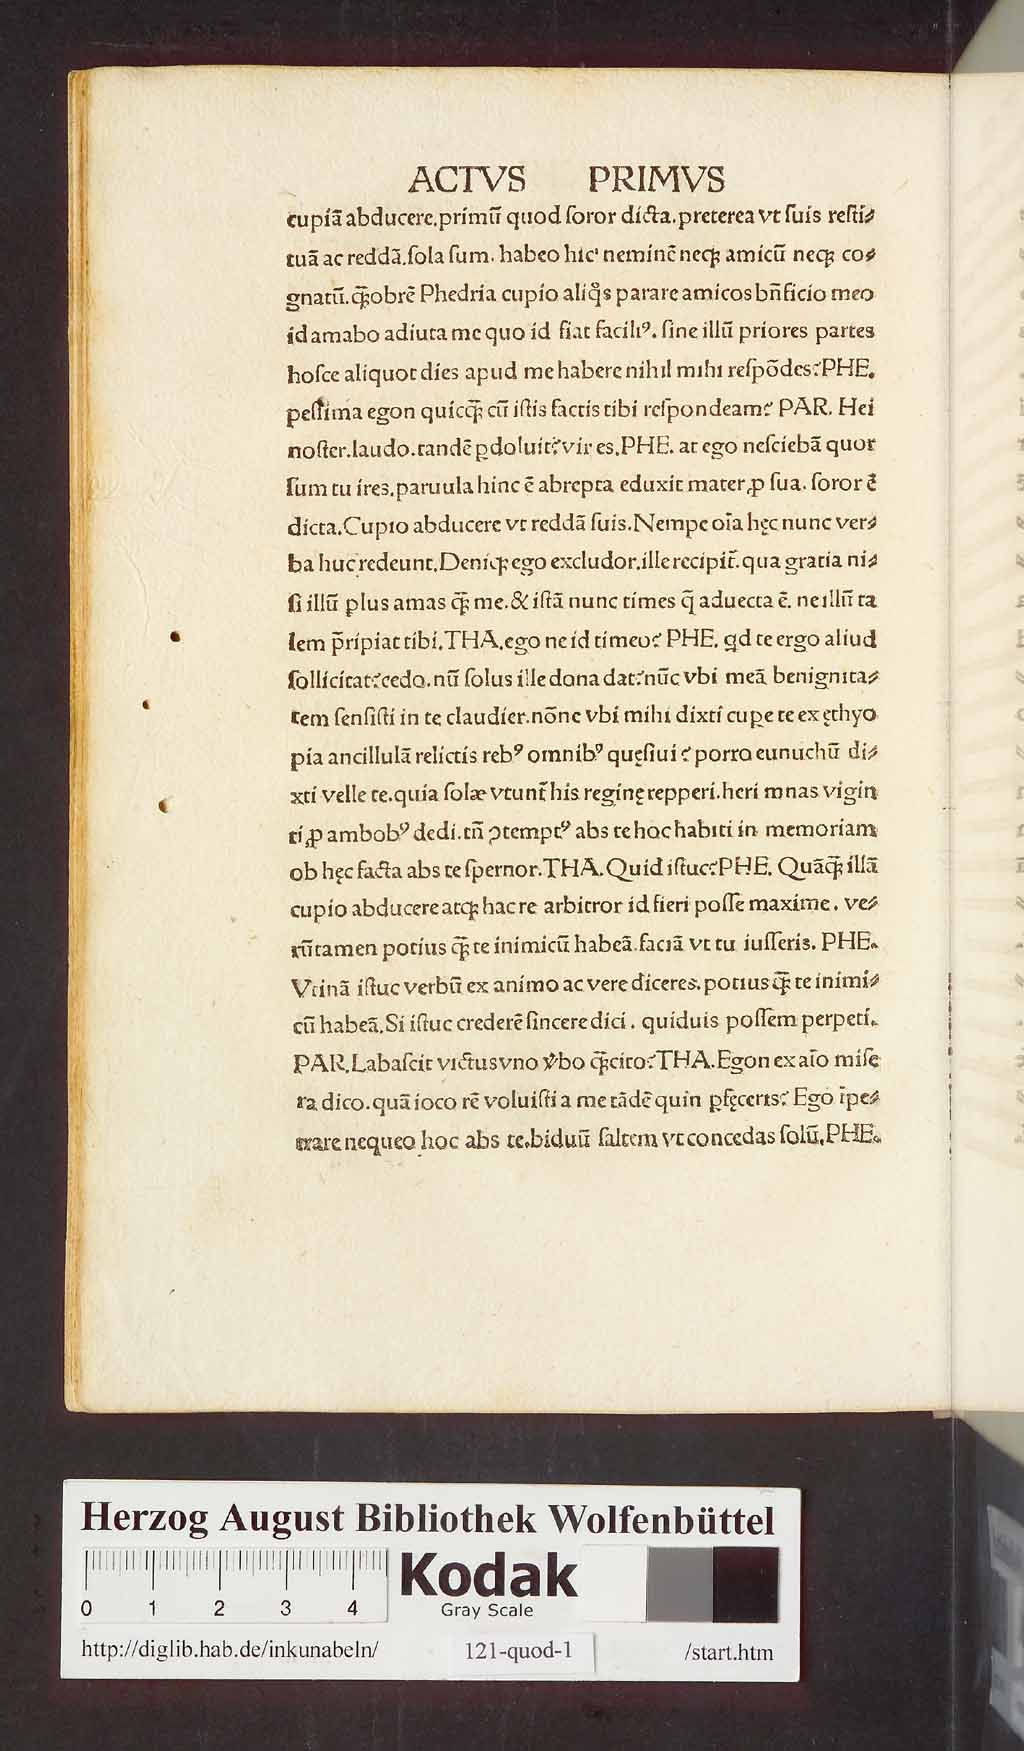 ACTVS PRIMVS
cupiā abducere.primū quod ſoror dicta.preterea vt ſuis reſti⸗
tuā ac reddā.ſola ſum. habeo hic neminē neqꝫ amicū neqꝫ co⸗
gnatū.qꝫ̄obrē Phedria cupio aliq̊s parare amicos bn̄ficio meo
id amabo adiuta me quo id fiat faciliꝰ. ſine illū priores partes
hoſce aliquot dies apud me habere nihil mihi reſpōdes?PHE.
peſſima egon quicqꝫ̄ cū iſtis factis tibi reſpondeam? PAR. Hei
noſter.laudo.tandē ꝑdoluit?vir es.PHE. at ego neſciebā quor
ſum tu ires.paruula hinc ē abrepta eduxit mater ꝓ ſua. ſoror ē
dicta.Cupio abducere vt reddā ſuis.Nempe oīa hęc nunc ver⸗
ba huc redeunt.Deniqꝫ ego excludor.ille recipit̄.qua gratia ni⸗
ſi illū plus amas qꝫ̄ me.& iſtā nunc times q̄ aduecta ē. ne illū ta
lem p̄ripiat tibi.THA.ego ne id timeo? PHE. qd te ergo aliud
ſollicitat?cedo.nū ſolus ille dona dat?nūc vbi meā benignita⸗
tem ſenſiſti in te claudier.nōne vbi mihi dixti cuꝑe te ex ęthyo
pia ancillulā relictis rebꝰ omnibꝰ quęſiui? porro eunuchū di⸗
xti velle te.quia ſolæ vtunt̄ his reginę repperi.heri mnas vigin
ti ꝓ ambobꝰ dedi.tn̄ ꝯtemptꝰ abs te hoc habiti in memoriam
ob hęc facta abs te ſpernor.THA.Quid iſtuc?PHE. Quāqꝫ̄ illā
cupio abducere atqꝫ hac re arbitror id fieri poſſe maxime. ve⸗
rūtamen potius qꝫ̄ te inimicū habeā.faciā vt tu iuſſeris. PHE.
Vtinā iſtuc verbū ex animo ac vere diceres. potius qꝫ̄ te inimi⸗
cū habeā.Si iſtuc crederē ſincere dici. quiduis poſſem perpeti.
PAR.Labaſcit victus vno v̆bo qꝫ̄ cito?THA.Egon ex aīo miſe
ra dico.quā ioco rē voluiſti a me tādē quin ꝑfęceris? Ego īpe⸗
trare nequeo hoc abs te.biduū ſaltem vt concedas ſolū.PHE.
Herzog August Bibliothek Wolfenbüttel
0 1 2 3 4
Kodak
Gray Scale
http://diglib.hab.de/inkunabeln/ 121-quod-1 /start.htm